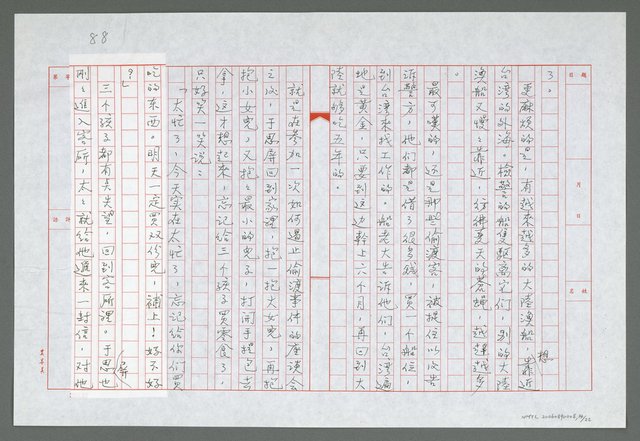 88
3。
更麻煩的是，有越來越多的大陸漁船，靠近
台灣的外海。檢警的船隻驅離它們，別的大陸
漁船又慢慢靠近，彷彿夏天的蒼蠅，越趕越多
。
最可嘆的，還是那些偷渡客，被捉住以後告
訴警方，他們都是借了很多錢，買一個船位，
到台灣來找工作的。船老大告訴他們，台灣遍
地是黃金，只要到這边幹上六個月，再回到大
陸就夠吃五年的。
就是在參加一次如何遏止偷渡事件的座談会
之後，于思屏回到家裡，抱一抱大女兒，再抱
抱小女兒，又抱抱最小的兒子，打開手提包去
拿，这才想起來，忘记給三個孩子買零食了，
只好笑一笑說：
「太忙了，今天实在太忙了，忘记给你們買
吃的东西。明天一定買双份兒，補上！好不好
？」
三個孩子都有点失望，回到客所裡，于思也
屏
剛剛進入客所，太太就给他遞來一封信，对他